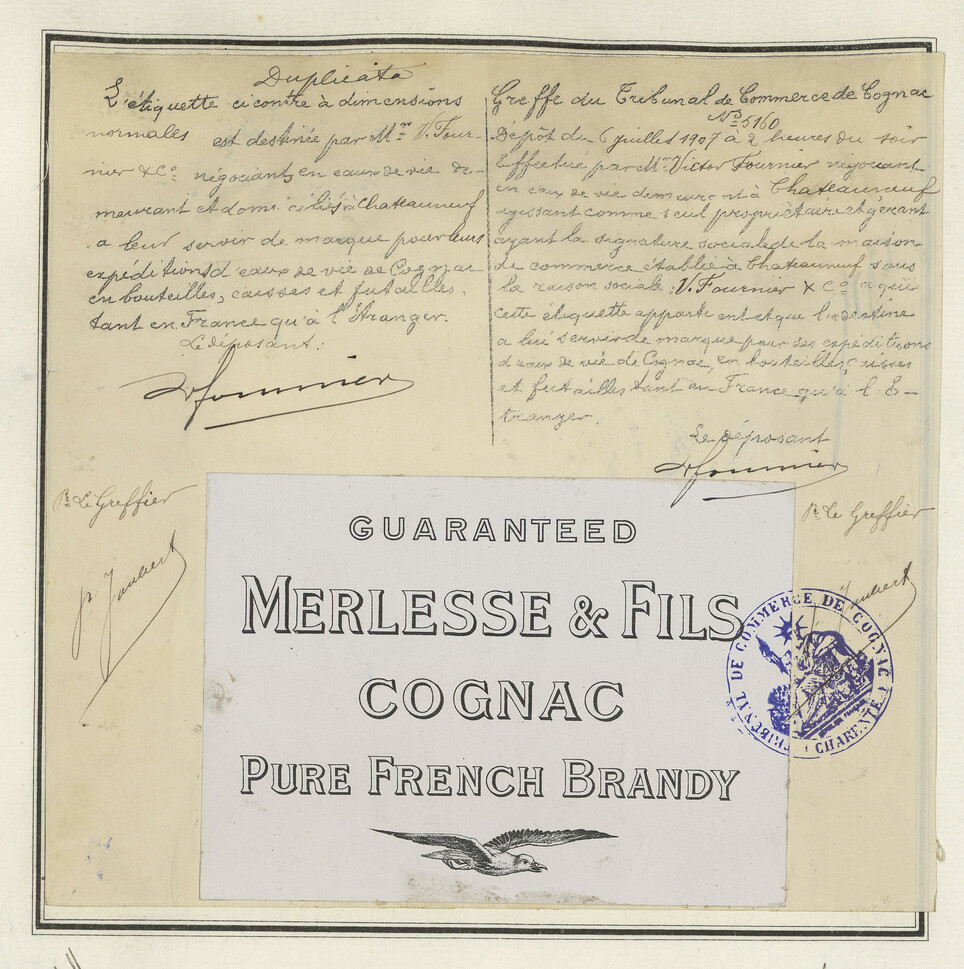 Duplicata
L'étiquette ci contre à dimensions
normales est destinée par Mr V. Four-
nier & Co négociants en eaux de vie de-
meurant et domiciliés à Chateauneuf
a leur servir de marque pour leurs
expéditions d'eaux de vie de Cognac
en bouteilles, caisses et futailles,
tant en France qu'à l'Etranger.
Le déposant:
Vfournier
Pr Le Greffier
Greffe du Tribunal de Commerce de Cognac
No 5160
Dépôt du 6 juillet 1907 à 2 heures du soir
Effectué par Mr Victor Fournier négociant
en eaux de vie demeurant à Chateauneuf
agissant comme seul propriétaire et gérant
ayant la signature sociale de la maison
de commerce établie à Chateauneuf sous
la raison sociale: V. Fournier & Co a qui
cette étiquette appartient et qui la destine
a lui servir de marque pour ses expéditions
d'eaux de vie de Cognac, en bouteilles, caisses
et futailles tant en France qu'à l'E-
tranger.
Le déposant
Vfournier
Pr Le Greffier
GUARANTEED
MERLESSE & FILS
COGNAC
PURE FRENCH BRANDY
TRIBUNAL DE COMMERCE DE COGNAC
CHARENTE